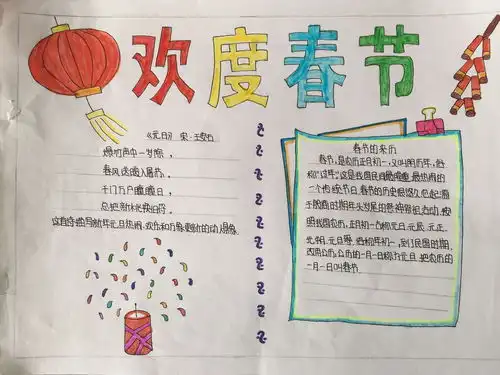 欢度春节
《元日》 宋·王安石
爆竹声中一岁除，
春风送暖入屠苏。
千门万户曈曈日，
总把新桃换旧符。
这首诗描写新年元日热闹、欢乐和万象更新的动人景象
春节的来历
春节，是农历正月初一，又叫阴历年，俗
称"过年"这是我国民间最隆重、最热闹的
一个传统节日。春节的历史很悠久，它起源
于殷商时期年头岁尾的祭神祭祖活动，按
照我国农历，正月初一古称元日、元辰、元正、
元朔、元旦等，俗称年初一，到了民国时期，
改用公历，公历的一月一日称为元旦，把农历的
一月一日叫春节